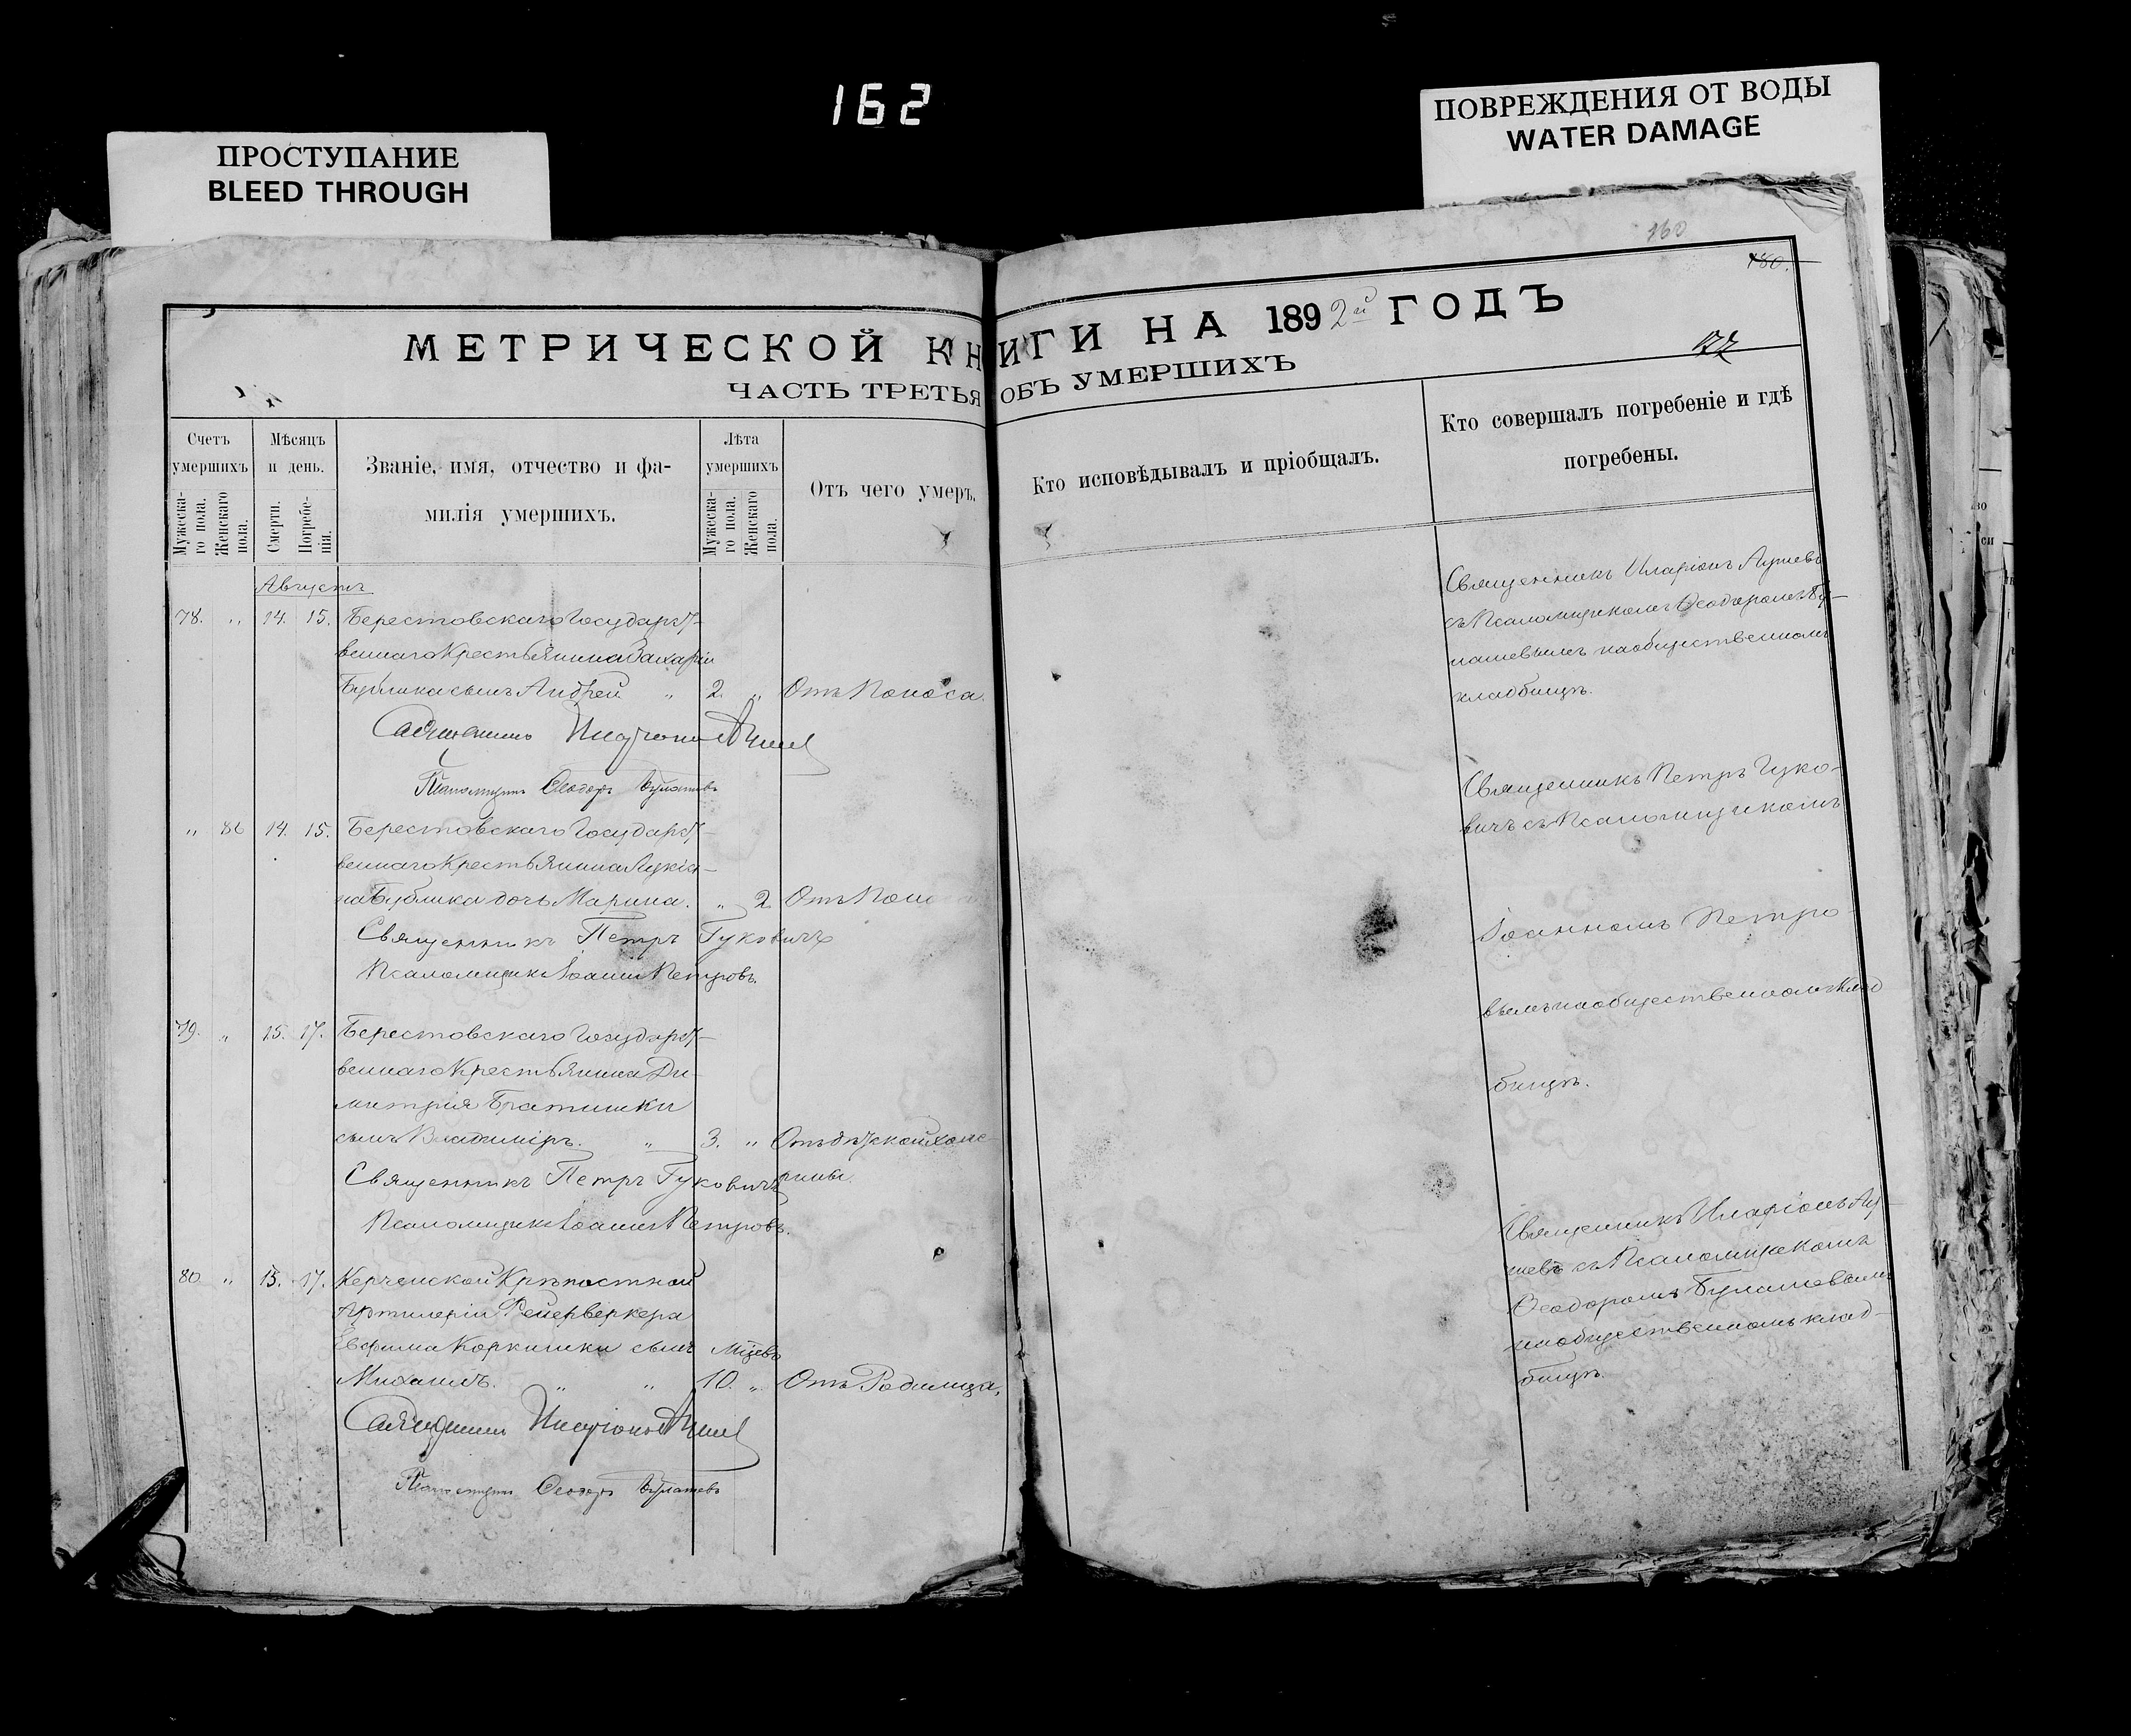 162
ПРОСТУПАНИЕ
BLEED THROUGH
ПОВРЕЖДЕНИЯ ОТ ВОДЫ
WATER DAMAGE
160
180.
МЕТРИЧЕСКОЙ КНИГИ НА 1892й ГОДЪ
ЧАСТЬ ТРЕТЬЯ ОБЪ УМЕРШИХЪ
Счетъ умершихъ
Мужеска-го пола.
Женскаго пола.
Мѣсяцъ и день.
Смерти.
Погребе-нія.
Званіе, имя, отчество и фа-
милія умершихъ.
Лѣта умершихъ
Мужеска-го пола.
Женскаго пола.
Отъ чего умеръ.
Кто исповѣдывалъ и пріобщалъ.
Кто совершалъ погребеніе и гдѣ
погребены.
Августъ
78. " 14. 15. Берестовскаго Государст-
веннаго Крестьянина Захарія
Бублика сынъ Андрей " 2. " Отъ Поноса.
Священникъ Иларіонъ
Псаломщикъ Ѳеодоръ Булашевъ
Священникъ Иларіонъ
съ Псаломщикомъ Ѳеодоромъ Бу-
лашевымъ на общественномъ
кладбищѣ.
" 86 14. 15. Берестовскаго Государст-
веннаго Крестьянина Лукіа-
на Бублика дочь Марина. " 2 Отъ
Священникъ Петръ Гуковичъ
Псаломщикъ Іоаннъ Петровъ.
Священникъ Петръ Гуко-
вичъ съ Псаломщикомъ
Іоанномъ Петро-
вымъ на общественномъ клад
бищѣ.
79. " 15. 17. Берестовскаго Государст-
веннаго Крестьянина Ди-
митрія Братишки
сынъ Владиміръ. " 3. " Отъ дѣтской холе-
рины.
Священникъ Петръ Гуковичъ
Псаломщикъ Іоаннъ Петровъ.
80 " 15. 17. Керченской Крѣпостной
Артилеріи Фейерверкера
Евфима Коркишки сынъ Мѣсцевъ
Михаилъ. " " 10. " Отъ Родимца.
Священникъ Иларіонъ
Псаломщикъ Ѳеодоръ Булашевъ
Священникъ Иларіонъ
съ Псаломщикомъ
Ѳеодоромъ Булашевымъ
на общественномъ клад-
бищѣ.